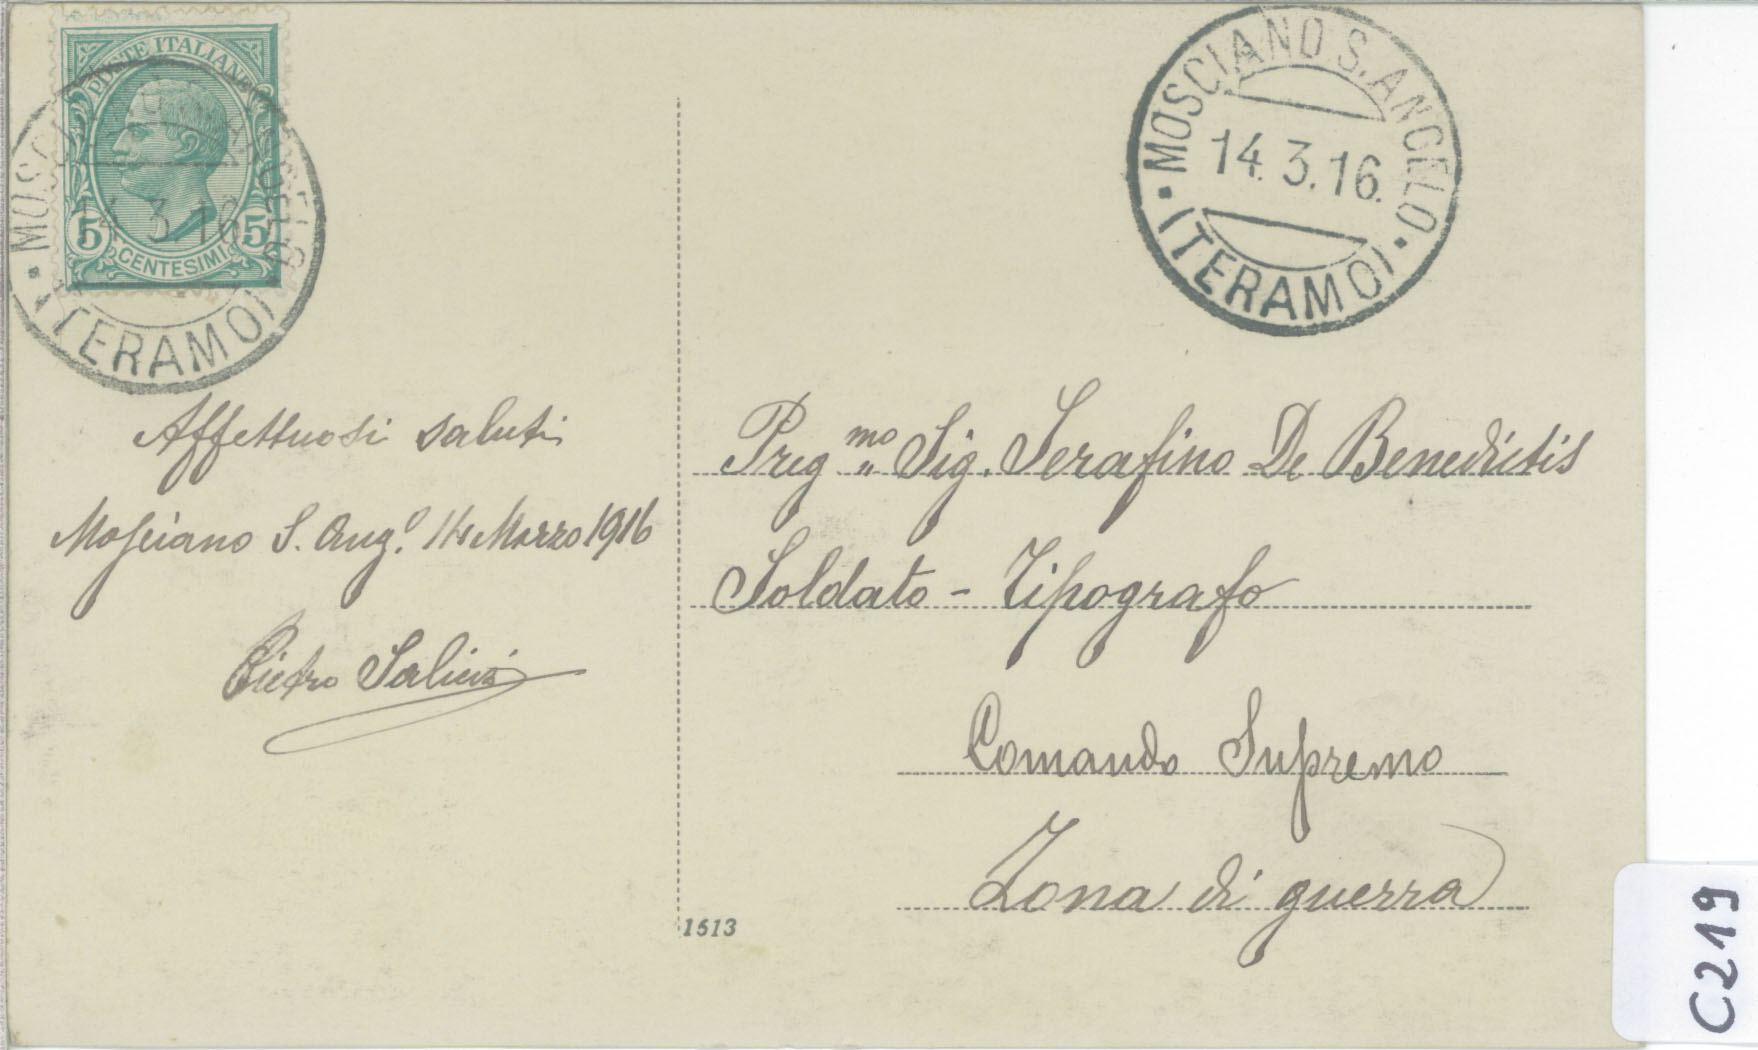 POSTE ITALIANE
5 5
CENTESIMI
MOSCIANO S. ANGELO
14.3.16
(TERAMO)
MOSCIANO S. ANGELO
14.3.16.
(TERAMO)
Affettuosi saluti
Mosciano S. Ang.º 14 Marzo 1916
Pietro
Preg.mo Sig. Serafino De Benedictis
Soldato - Tipografo
Comando Supremo
Zona di guerra
1513
C219